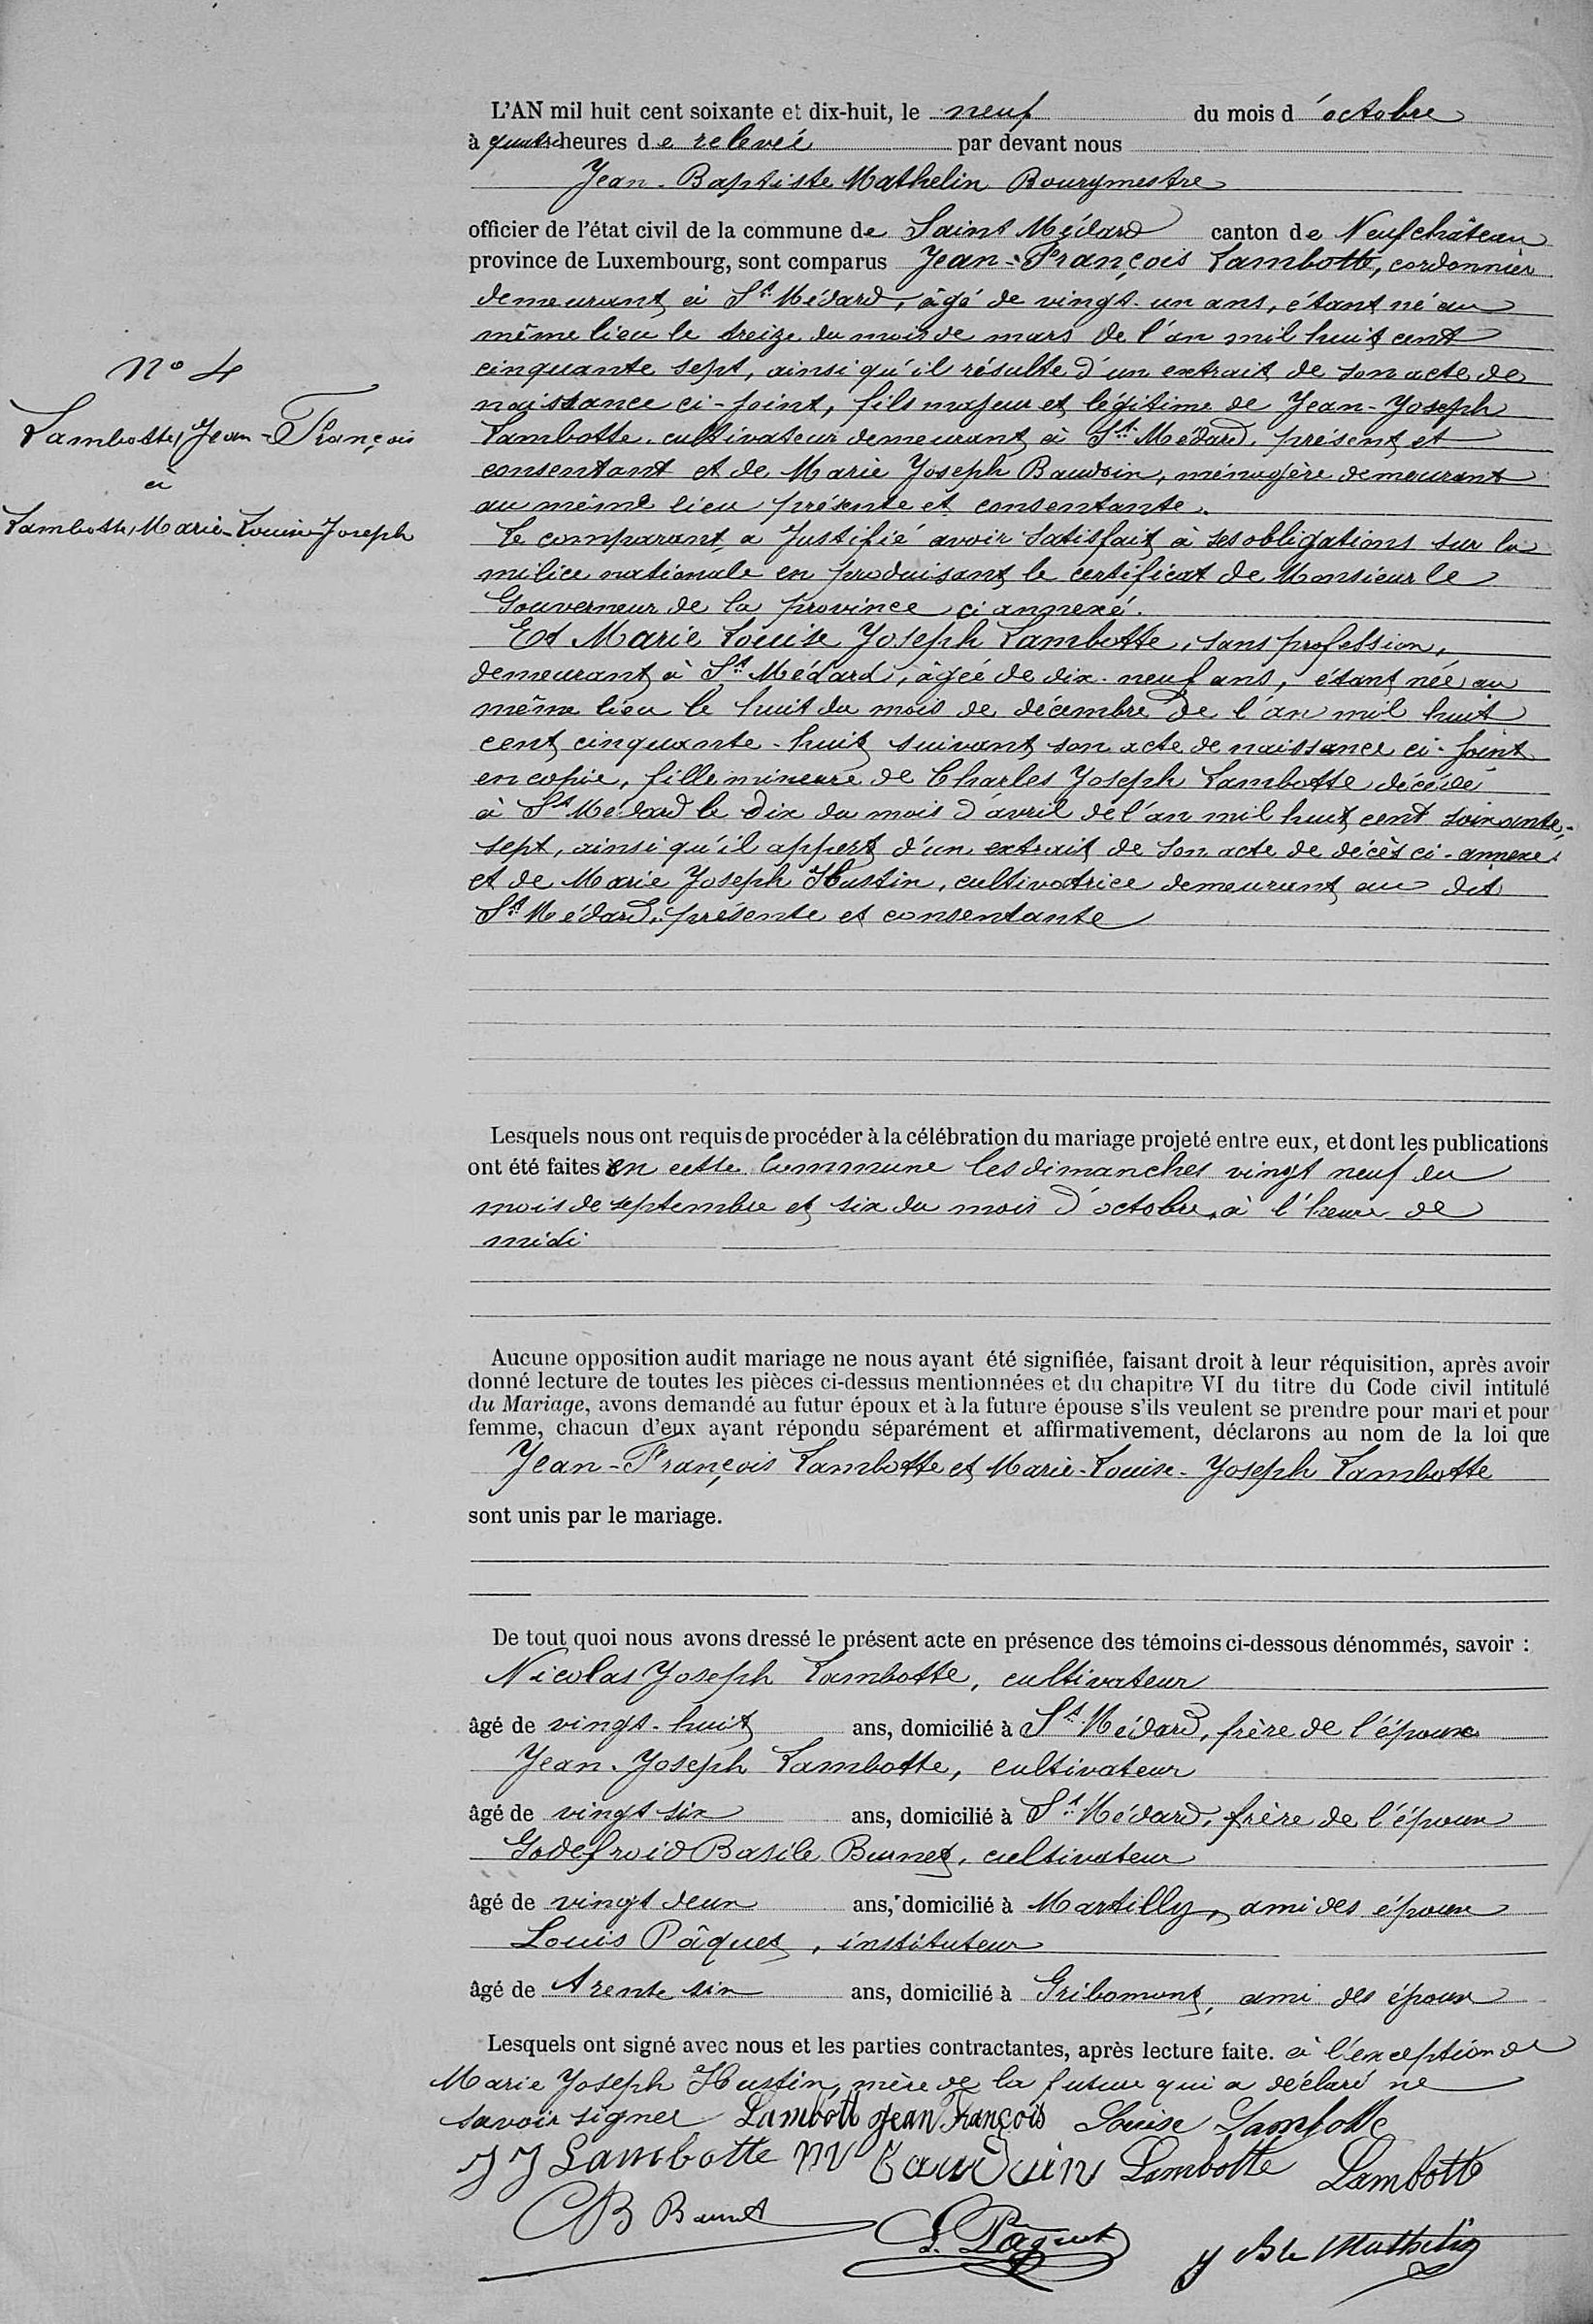 L'AN mil huit cent soixante et dix-huit, le neuf du mois d'octobre
à quatre heures de relevée par devant nous
Jean-Baptiste Mathelin Bourgmestre
officier de l'état civil de la commune de Saint Médard canton de Neufchâteau
province de Luxembourg, sont comparus Jean-François Lambotte, cordonnier
demeurant à St Médard, âgé de vingt-un ans, étant né au
même lieu le treize du mois de mars de l'an mil huit cent
cinquante sept, ainsi qu'il résulte d'un extrait de son acte de
naissance ci-joint, fils majeur et légitime de Jean-Joseph
Lambotte, cultivateur demeurant à St Médard, présent et
consentant et de Marie Joseph Baudoin, ménagère demeurant
au même lieu présente et consentante.
Le comparant a justifié avoir satisfait à ses obligations sur la
milice nationale en produisant le certificat de Monsieur le
Gouverneur de la province ci annexé.
Et Marie Louise Joseph Lambotte, sans profession,
demeurant à St Médard, âgée de dix-neuf ans, étant née au
même lieu le huit du mois de décembre de l'an mil huit
cent cinquante-huit suivant son acte de naissance ci-joint
en copie, fille mineure de Charles Joseph Lambotte décédé
à St Médard le dix du mois d'avril de l'an mil huit cent soixante-
sept, ainsi qu'il appert d'un extrait de son acte de décès ci-annexé
et de Marie Joseph Hustin, cultivatrice demeurant au dit
St Médard, présente et consentante
N° 4
Lambotte, Jean-François
à
Lambotte, Marie-Louise-Joseph
Lesquels nous ont requis de procéder à la célébration du mariage projeté entre eux, et dont les publications
ont été faites en cette commune les dimanches vingt neuf du
mois de septembre et six du mois d'octobre, à l'heure de
midi
Aucune opposition audit mariage ne nous ayant été signifiée, faisant droit à leur réquisition, après avoir
donné lecture de toutes les pièces ci-dessus mentionnées et du chapitre VI du titre du Code civil intitulé
du Mariage, avons demandé au futur époux et à la future épouse s'ils veulent se prendre pour mari et pour
femme, chacun d'eux ayant répondu séparément et affirmativement, déclarons au nom de la loi que
Jean-François Lambotte et Marie-Louise-Joseph Lambotte
sont unis par le mariage.
De tout quoi nous avons dressé le présent acte en présence des témoins ci-dessous dénommés, savoir :
Nicolas Joseph Lambotte, cultivateur
âgé de vingt-huit ans, domicilié à St Médard, frère de l'époux
Jean-Joseph Lambotte, cultivateur
âgé de vingt six ans, domicilié à St Médard, frère de l'époux
Godefroid Basile Burnet, cultivateur
âgé de vingt deux ans, domicilié à Martilly, ami des époux
Louis Pâquet, instituteur
âgé de trente six ans, domicilié à Gribomont, ami des époux
Lesquels ont signé avec nous et les parties contractantes, après lecture faite. à l'exception de
Marie Joseph Hustin, mère de la future qui a déclaré ne
savoir signer Lambott Jean François Louise Lambotte
J J Lambotte M Bauduin Lambotte Lambotte
B Burnet
L. Pâquet J Bte Mathelin